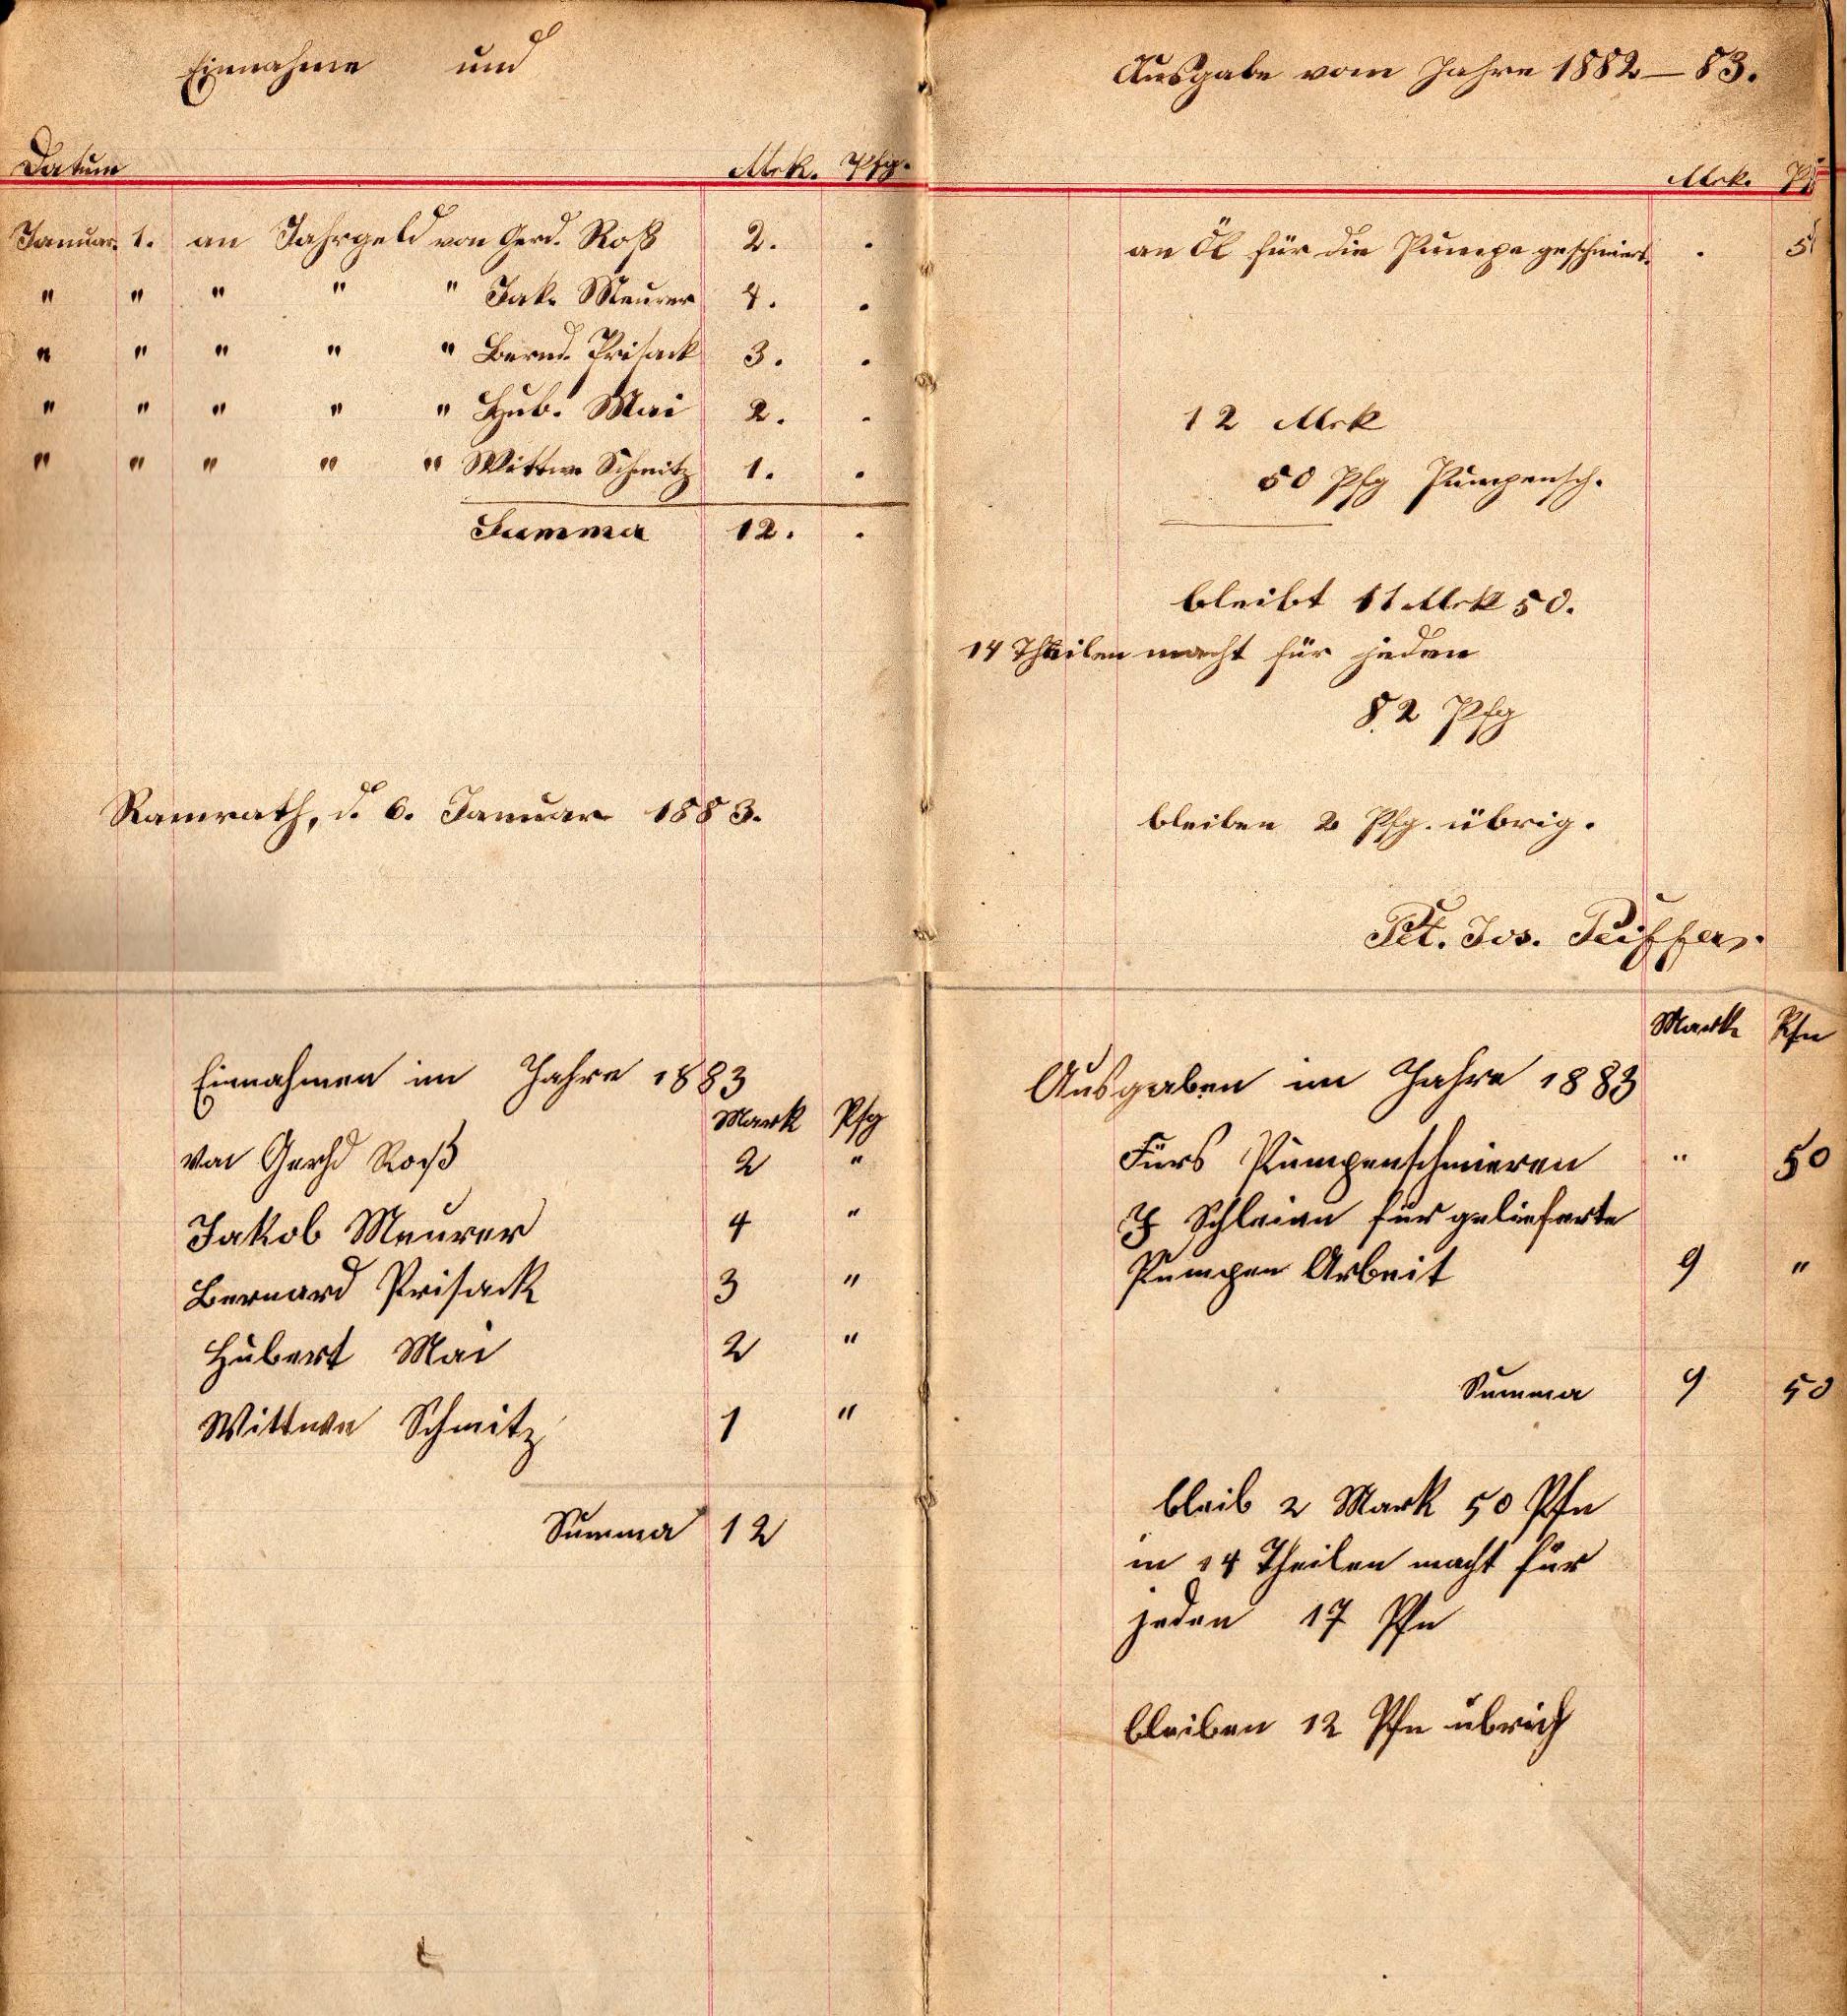 Einnahme und
Datum Mrk. Pfg.
Januar. 1. an Jahrgeld von Gerd. Roß 2. .
" " " " " Jak. Meurer 4. .
" " " " " Bernd. Prisack 3. .
" " " " " Hub. Mai 2. .
" " " " " Wittwe Schmitz 1. .
Summa 12. .
Ramrath, d. 6. Januar 1883.
Ausgabe vom Jahre 1882–83.
Mrk. Pf
an Öl für die Pumpe geschmiert. . 5
12 Mrk
50 Pfg Pumpensch.
bleibt 11 Mrk 50.
14 Theilen macht für jeden
82 Pfg
bleiben 2 Pfg. übrig.
Pet. Jos. Peiffer.
Einnahmen im Jahre 1883
Mark Pfg
von Gerhd Roß 2 "
Jakob Meurer 4 "
Bernard Prisack 3 "
Hubert Mai 2 "
Wittwe Schmitz 1 "
Summa 12
Mark Pfn
Ausgaben im Jahre 1883
Fürs Pumpenschmieren " 50
Schleien für gelieferte
Pumpen Arbeit 9 "
Summa 9 50
bleib 2 Mark 50 Pfn
in 14 Theilen macht für
jeden 17 Pfn
bleiben 12 Pfn übrich